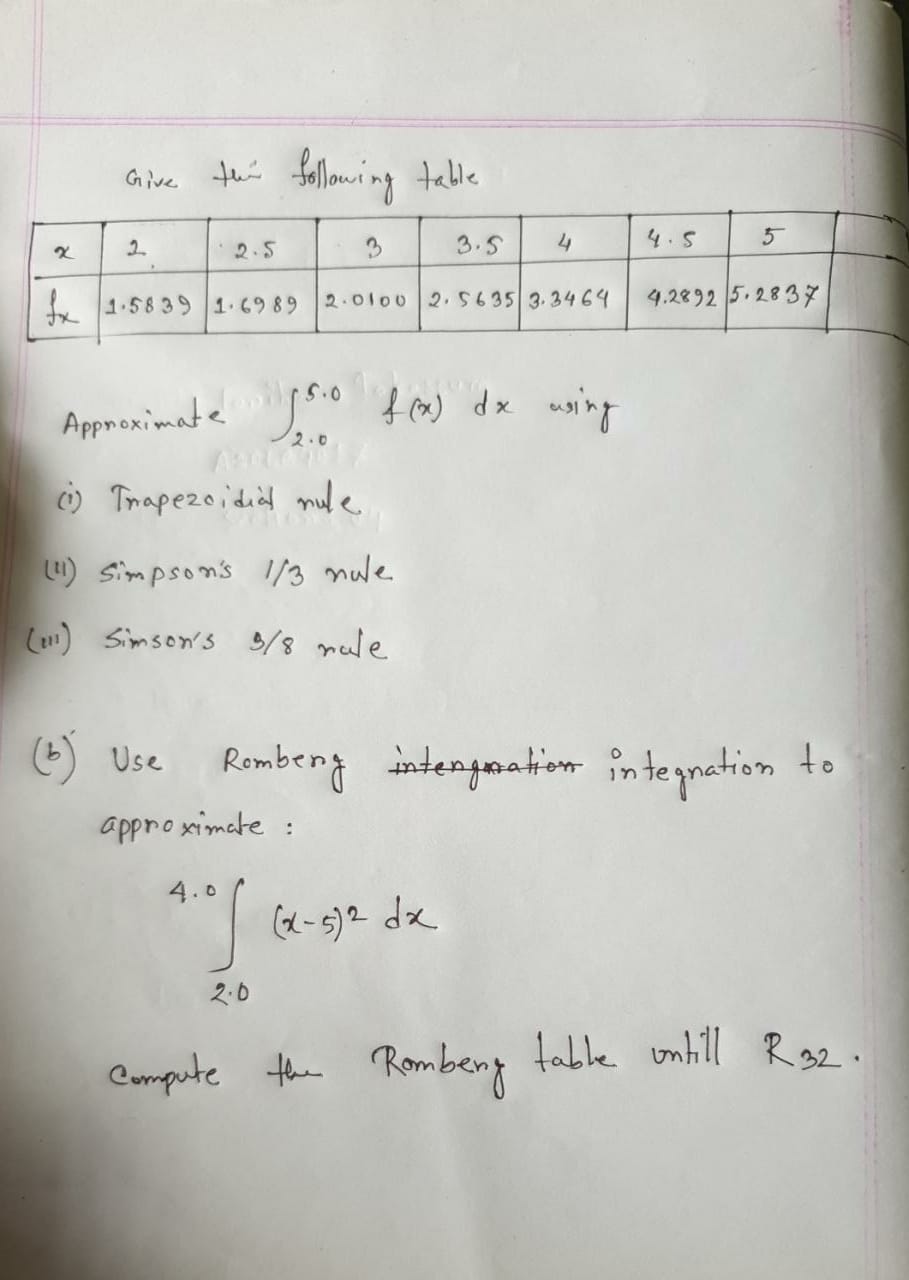 Give the following table
x 2 2.5 3 3.5 4 4.5 5
fx 1.5839 1.6989 2.0100 2.5635 3.3464 4.2892 5.2837
Approximate ∫2.0 5.0 f(x) dx using
(i) Trapezoidial rule
(ii) Simpson's 1/3 rule
(iii) Simson's 3/8 rule
(b) Use Romberg intengration integration to
approximate :
4.0
∫ (x-5)2 dx
2.0
Compute the Romberg table untill R32.